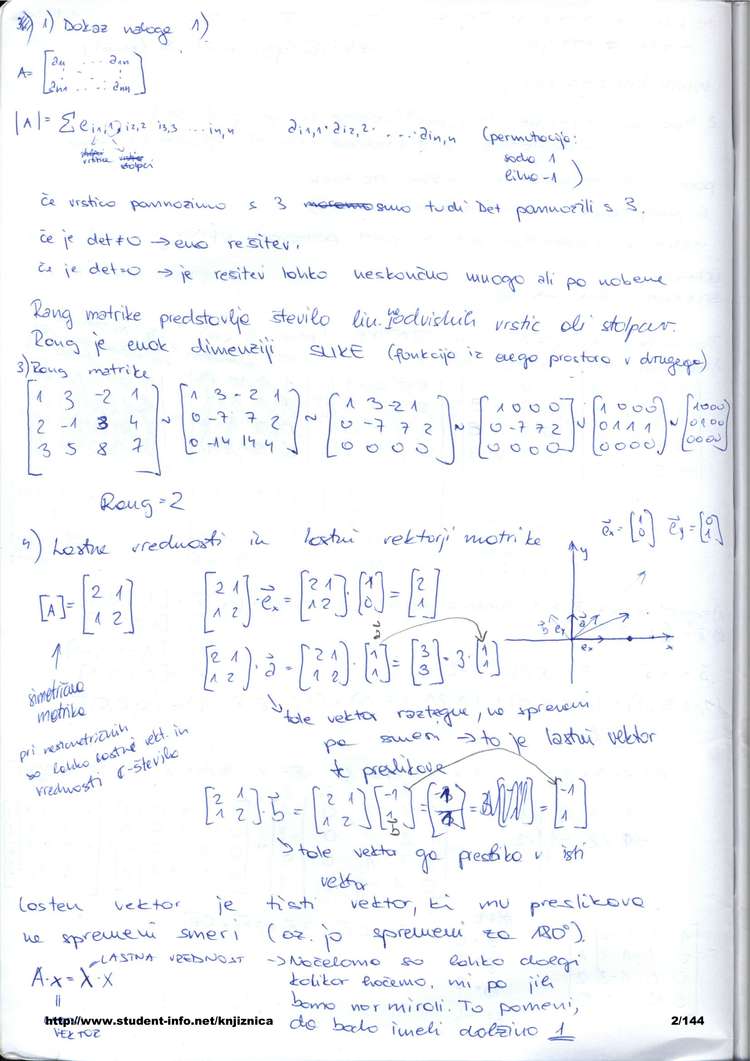 1) Dokaz naloge 1)
A = [a11 ... a1n
an1 ... ann]
|A| = Σ e i1,1, i2,2 i3,3 ... in,n a i1,1 · a i2,2 · ... · a in,n (permutacija:
vrstice stolpci sodo 1
liho -1)
če vrstico pomnozimo s 3 smo tudi Det pomnozili s 3.
če je det≠0 → eno rešitev.
če je det=0 → je resitev lohko neskončno mnogo ali pa nobene
Rang matrike predstavlja število lin. neodvisnih vrstic ali stolpcev.
Rang je enak dimenziji SLIKE (funkcija iz enega prostora v drugega)
3) Rang matrike
[1 3 -2 1
2 -1 3 4
3 5 8 7] ~ [1 3 -2 1
0 -7 7 2
0 -14 14 4] ~ [1 3 -2 1
0 -7 7 2
0 0 0 0] ~ [1 0 0 0
0 -7 7 2
0 0 0 0] ~ [1 0 0 0
0 1 1 1
0 0 0 0] ~ [1 0 0 0
0 1 0 0
0 0 0 0]
Rang = 2
4) Lastne vrednosti in lastni vektorji matrike
ex = [1
0] ey = [0
1]
y
x
b ey a
ex
[A] = [2 1
1 2]
[2 1
1 2] · ex = [2 1
1 2] · [1
0] = [2
1]
↑
simetrična
matrika
[2 1
1 2] · a = [2 1
1 2] · [1
1] = [3
3] = 3 · [1
1]
pri nesimetričnih
so lohko lastni vekt. in
vrednosti
→ tole vektor raztegne, ne spremeni
pa smeri → to je lastni vektor
te preslikave
[2 1
1 2] · b = [2 1
1 2] [-1
1] = [-1
1] = [-1
1]
b
→ tole vektor ga preslika v isti
vektor
Losten vektor je tisti vektor, ki mu preslikava
ne spremeni smeri (oz. jo spremeni za 180°).
A·x = λ·x
LASTNA VREDNOST
VEKTOR
→ Načeloma so lohko dolgi
kolikor hočemo, mi pa jih
bomo normirali. To pomeni,
da bodo imeli dolžino 1
http://www.student-info.net/knjiznica
2/144